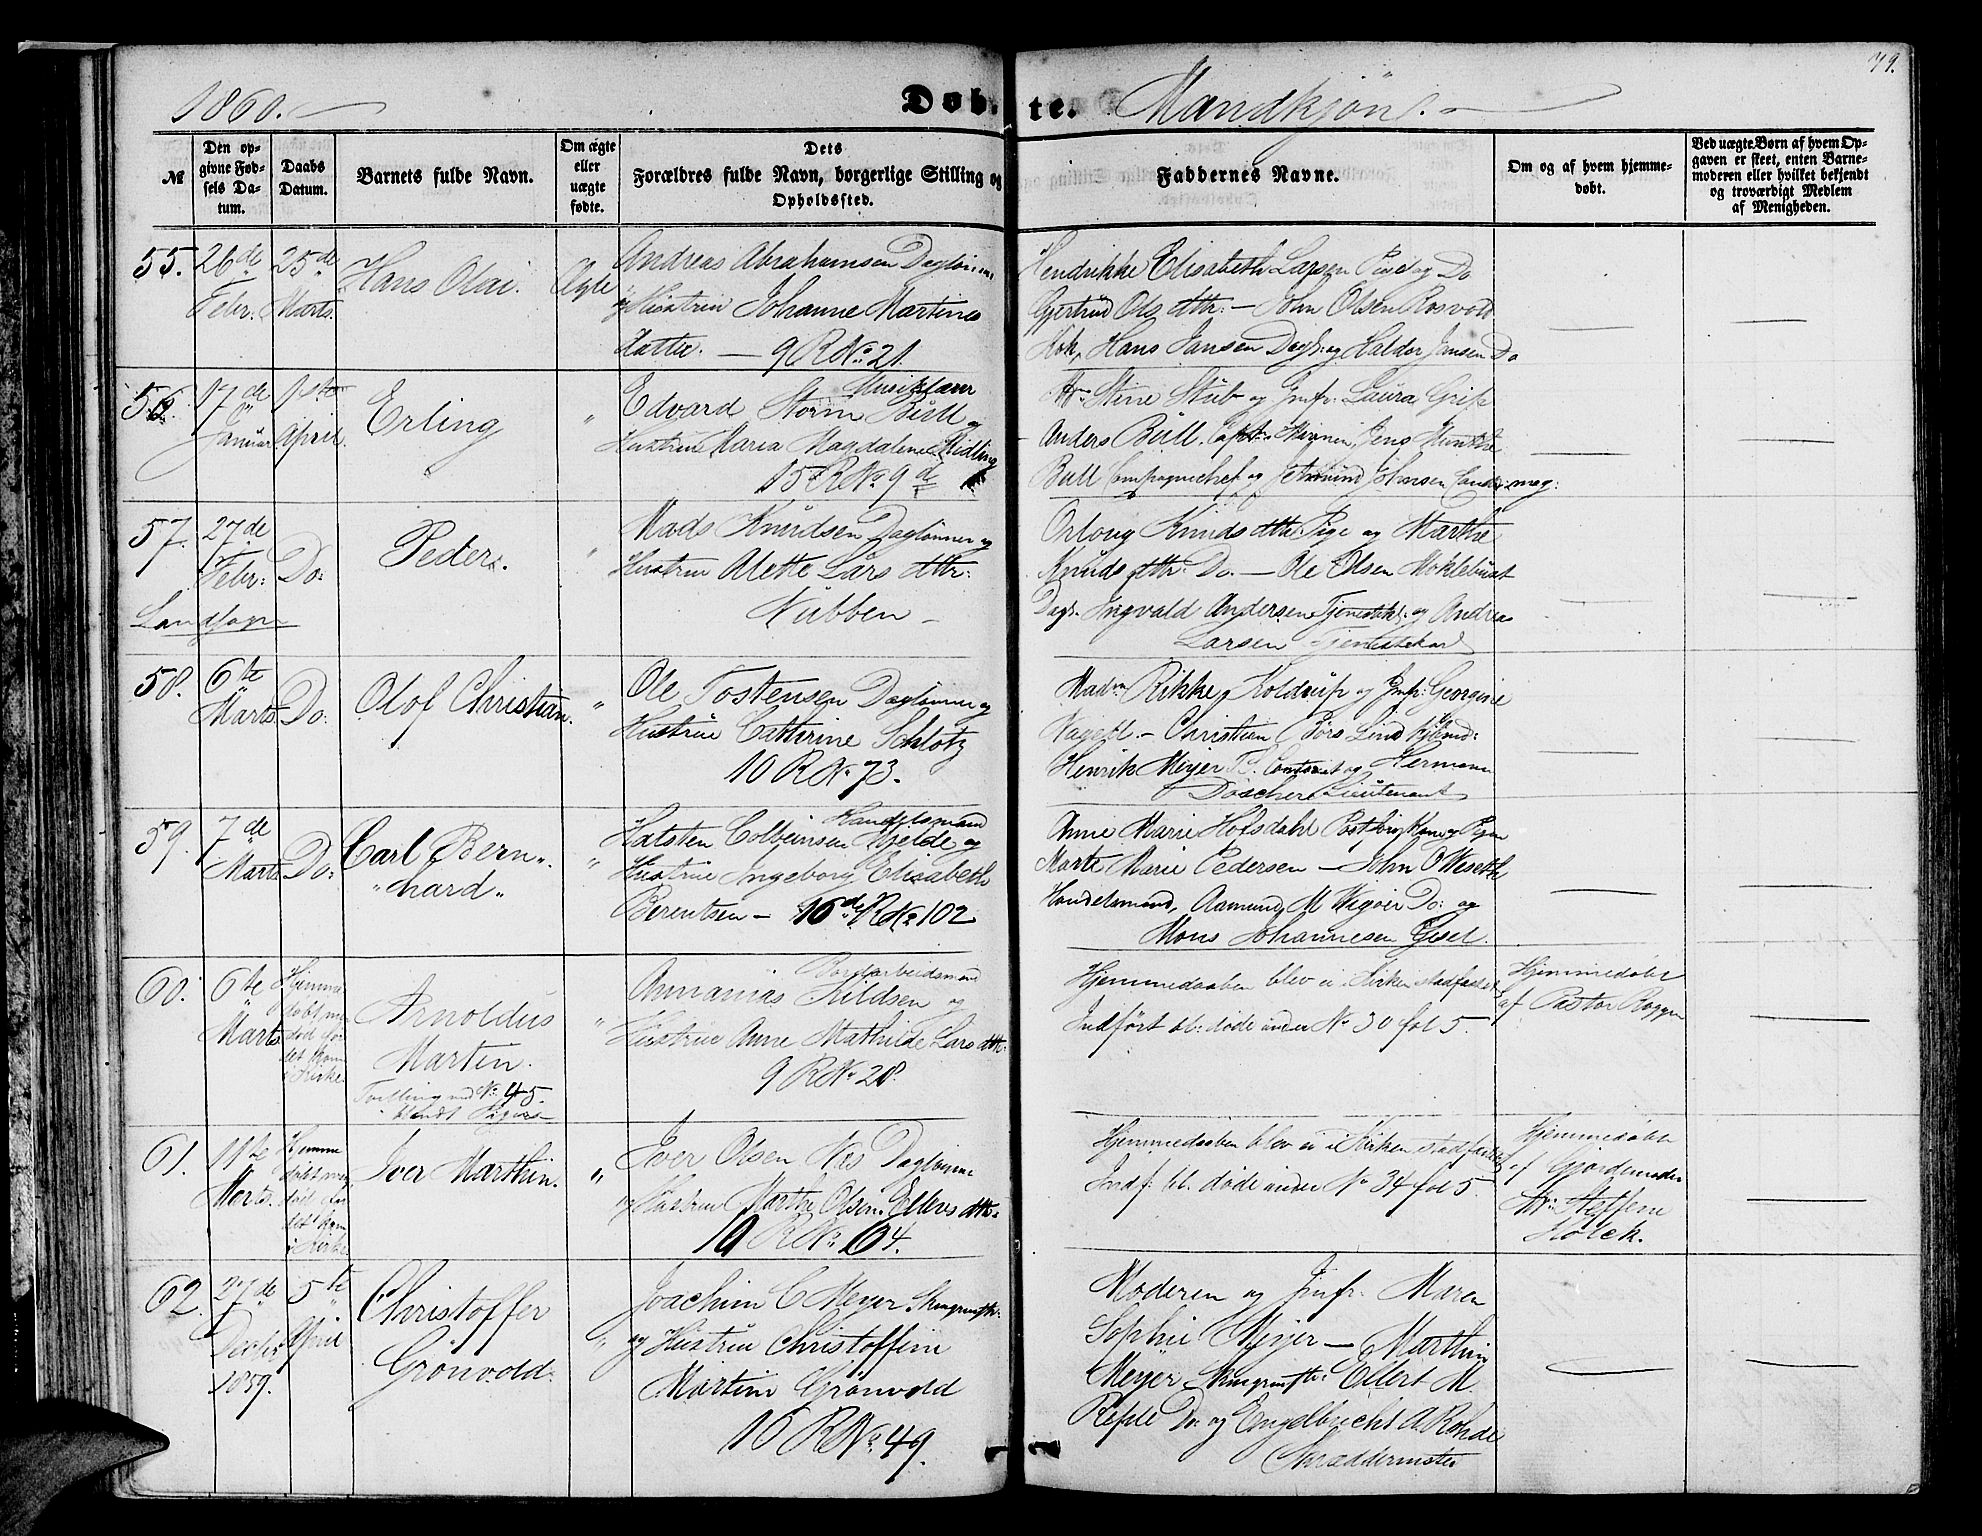 79.
1860.
Døbte. Mandkjøn.
№
Den opgivne Fødsels Datum.
Daabs Datum.
Barnets fulde Navn.
Om ægte eller uægte fødte.
Dets Forældres fulde Navn, borgerlige Stilling og Opholdssted.
Faddernes Navne.
Om og af hvem hjemmedøbt.
Ved uægte Børn af hvem Opgaven er skeet, enten Barnemoderen eller hvilket bekjendt og troværdigt Medlem af Menigheden.
55. 26de Febr. 25de Marts. Hans Olai. Ægte
Andreas Abrahamsen Daglønner
og Hustrue Johanne Martine
9 R No 21.
Hendrikke Elisabeth Larsen Pige og Do
Gjertrud Ols dtr. — John Olsen Rosvold
Hans Jansen Dagl. og Halder Jansen Do
56. 17de Januar 1ste April. Erling "
Edvard Storm Bull
Hustrue Maria Magdalene
15 R No 9
Stine Stub og Jmfr. Laura Grip
Anders Bull. Jens Munthe
Bull Compagniechef og Johnsen Cand. mag:
57. 27de Febr: Do: Peder. "
Landsogn
Mads Knudsen Daglønner og
Hustrue Alette Lars dttr:
Nubben —
Knuds dttr. Pige og Marthe
Knuds dttr. Do. — Ole Olsen Moklebust
Dagl. Ingvald Andersen Tjenestek: og Andreas
Larsen Tjenestekarl
58. 6te Marts Do: Olof Christian. "
Ole Tostensen Daglønner og
Hustrue Cathrine Schlotz
10 R No 73.
Mad. Rikke Koldrup og Jmfr: Georgine
Nagell — Christian Børs Lind
Henrik Meyer og Hermann
Døscher Lieutenant
59. 7de Marts Do: Carl Bern-
"hard" "
Handelsmand
Halsten Colbeinsen Hjelde og
Hustrue Ingeborg Elisabeth
Berentsen — 16de R No 102
Anne Marie Hofsdahl
Marte Marie Pedersen — John O
Handelsmand, Aamund M Do: og
Mons Johannesen
60. 6te Marts. Hjemme-
døbt
død før
det kom
i Kirke
Arnoldus
Martin. "
Tvilling med No 45.
blandt Piger
Annanias Kildsen og
Hustrue Anne Mathilde Lars dttr:
9 R No 28.
Hjemmedaaben blev ei i Kirken stadfæstet
Indført bl: døde under No 30 fol 5.
Hjemmedøbt
af Pastor
61. 11te Marts. Hjemme
døbt
død før
det kom
i Kirke
Iver Marthin. "
Iver Olsen Næs Daglønner
og Hustrue Marthe Olsen. Ellers dttr:
10 R No 64.
Hjemmedaaben blev ei i Kirken stadfæstet
Indf: bl. døde under No 34 fol 5.
Hjemmedøbt
af Gjordemoder
Steffene
Holck.
62. 27de Decbr 1859. 5te April Christoffer
Grönvold. "
Joachim C Meyer
og Hustrue Christoffine
Martine Grönvold
10 R No 49.
Moderen og Jmfr. Maren
Sophie Meyer — Marthin
Meyer Ellert M.
Do. og Engelbrecht A Rohde
Skræddermester